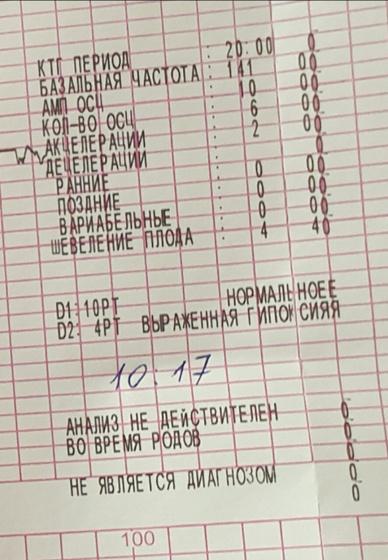 КТГ ПЕРИОД : 20:00 0
БАЗАЛЬНАЯ ЧАСТОТА : 141 00
АМП ОСЦ : 10 00
КОЛ-ВО ОСЦ : 6 00
АКЦЕЛЕРАЦИИ : 2 00
ДЕЦЕЛЕРАЦИИ 0
РАННИЕ : 0 00
ПОЗДНИЕ : 0 00
ВАРИАБЕЛЬНЫЕ : 0 00
ШЕВЕЛЕНИЕ ПЛОДА : 4 40
D1: 10PT НОРМАЛЬНОЕЕ
D2: 4PT ВЫРАЖЕННАЯ ГИПОКСИЯЯ
10:17
АНАЛИЗ НЕ ДЕЙСТВИТЕЛЕН 0
ВО ВРЕМЯ РОДОВ 0
0
НЕ ЯВЛЯЕТСЯ ДИАГНОЗОМ 0
0
100